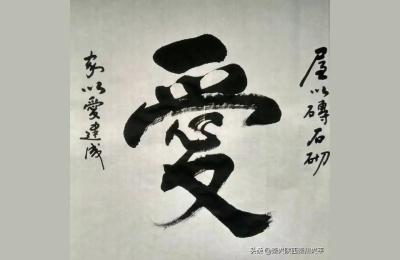 屋以磚石砌
愛
家以愛建成